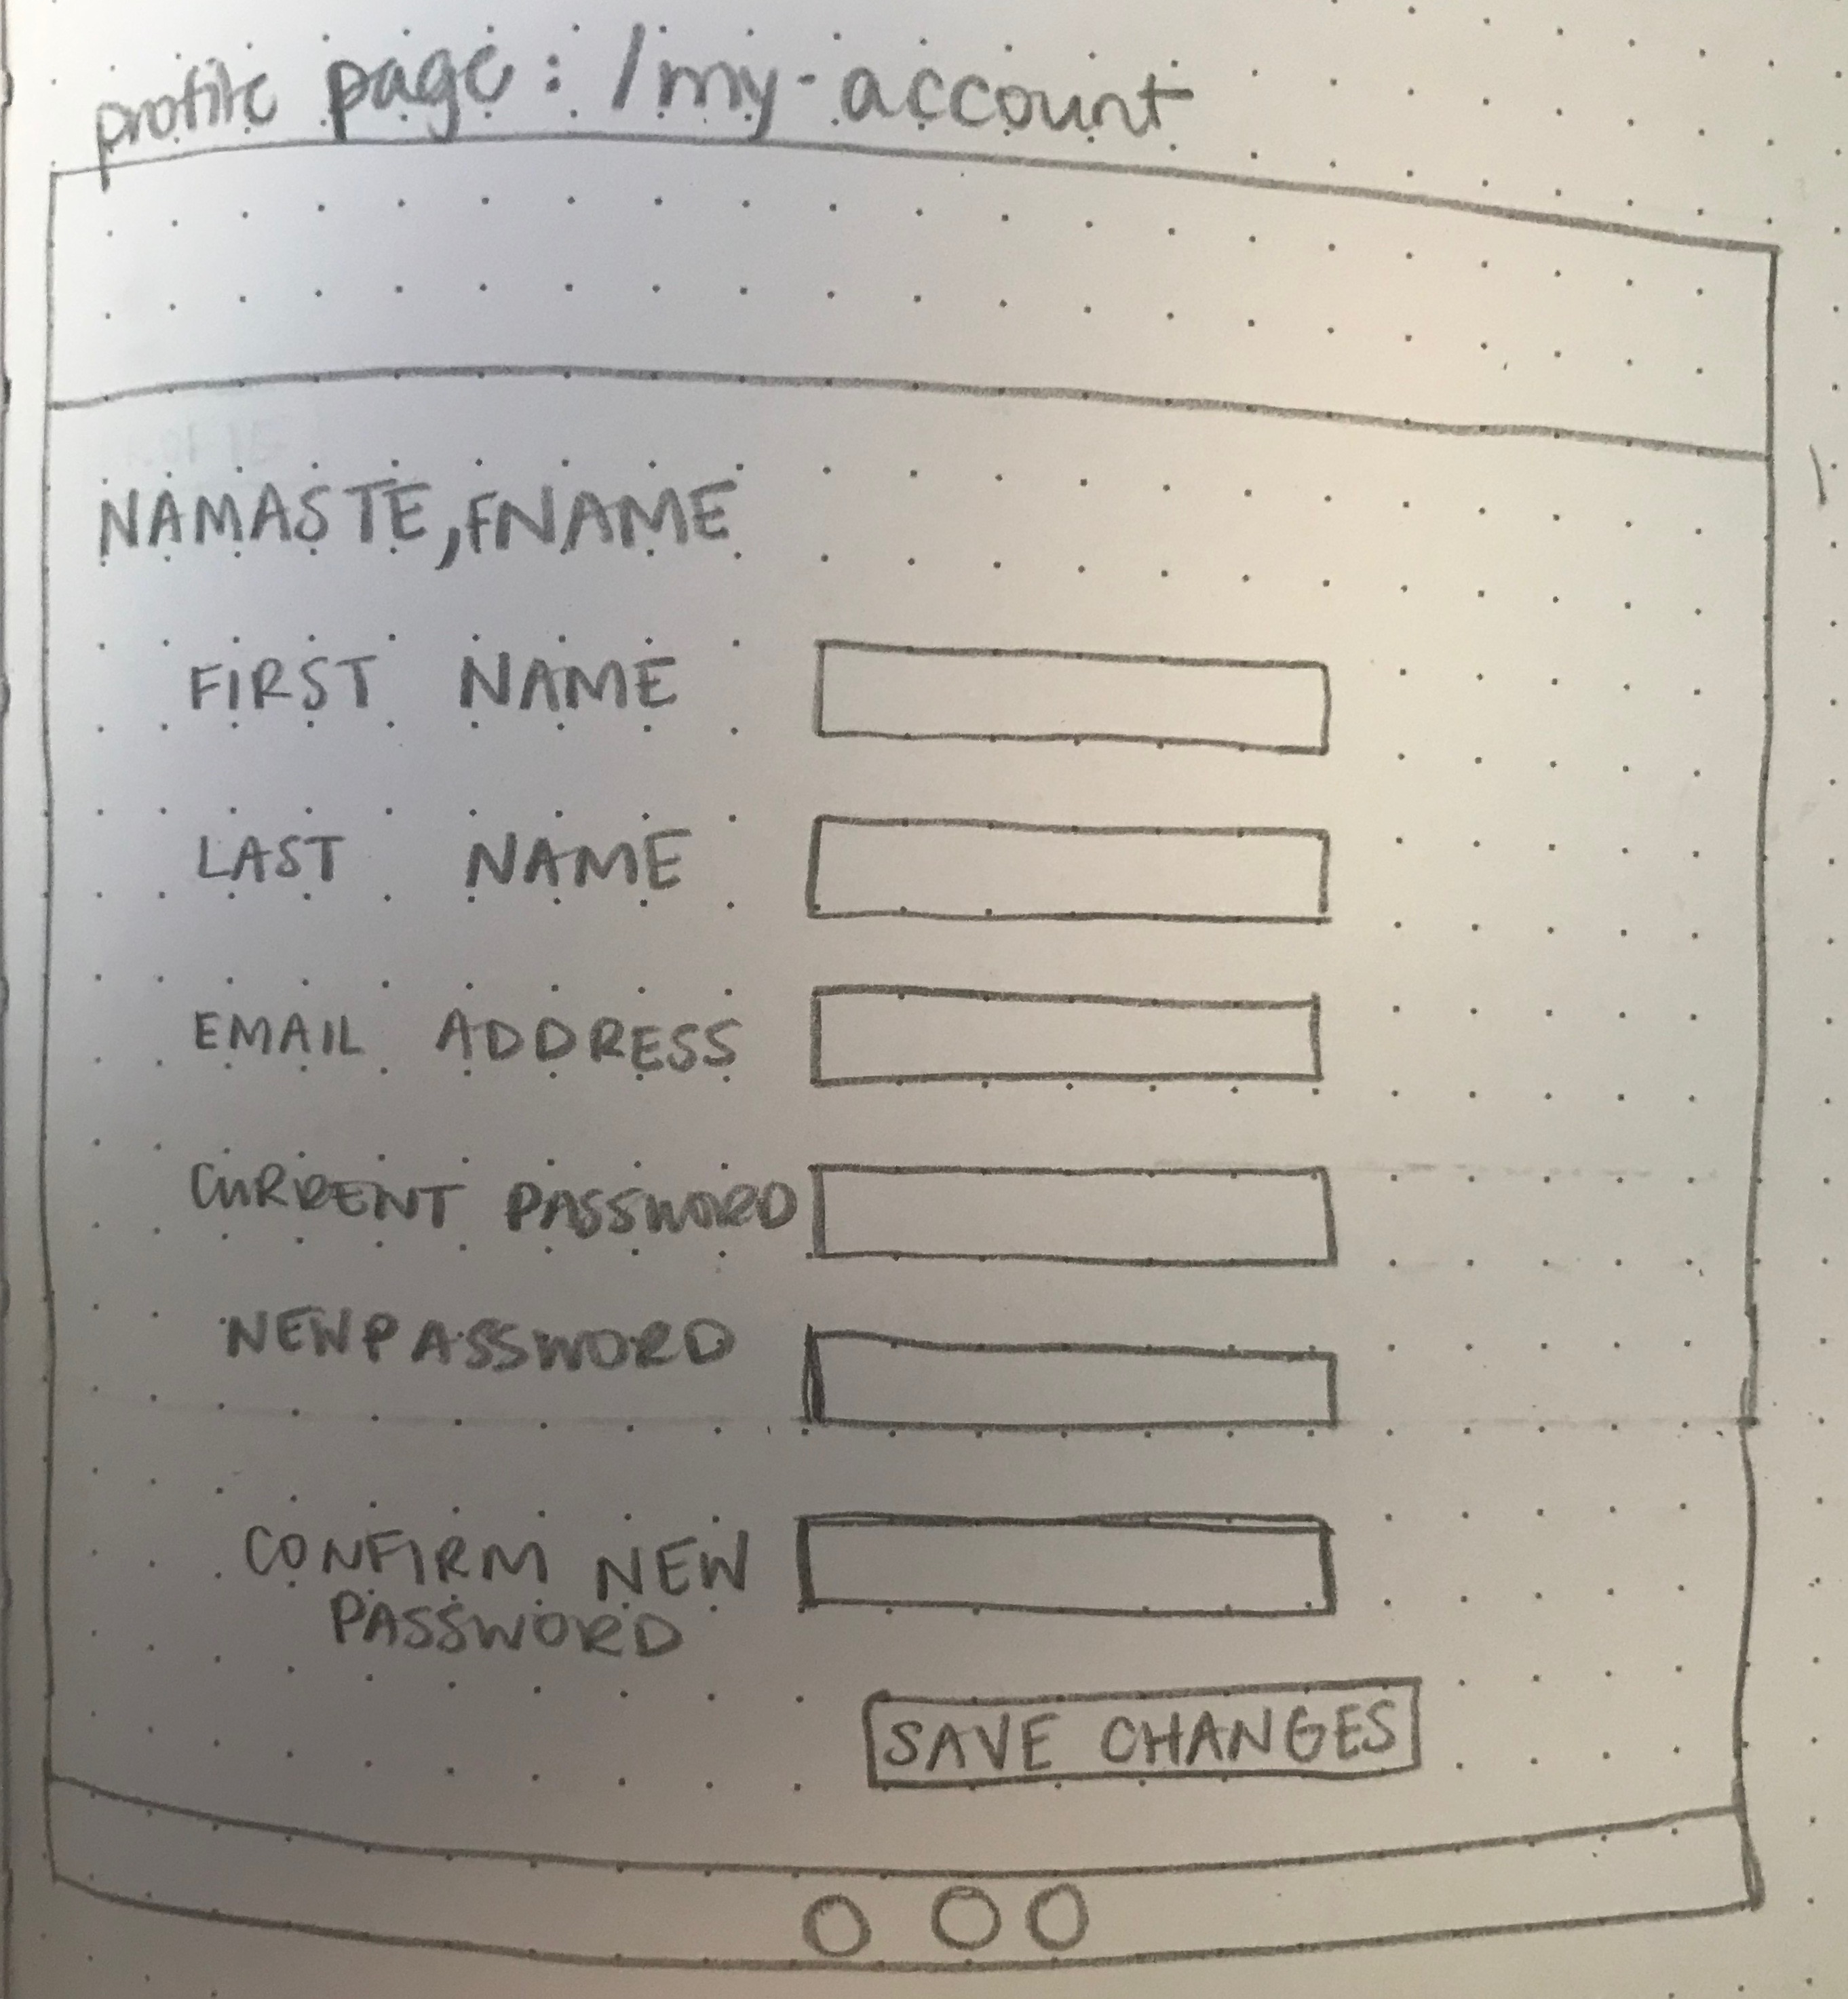 profile page: /my-account
NAMASTE, FNAME
FIRST NAME
LAST NAME
EMAIL ADDRESS
CURRENT PASSWORD
NEW PASSWORD
CONFIRM NEW
PASSWORD
SAVE CHANGES